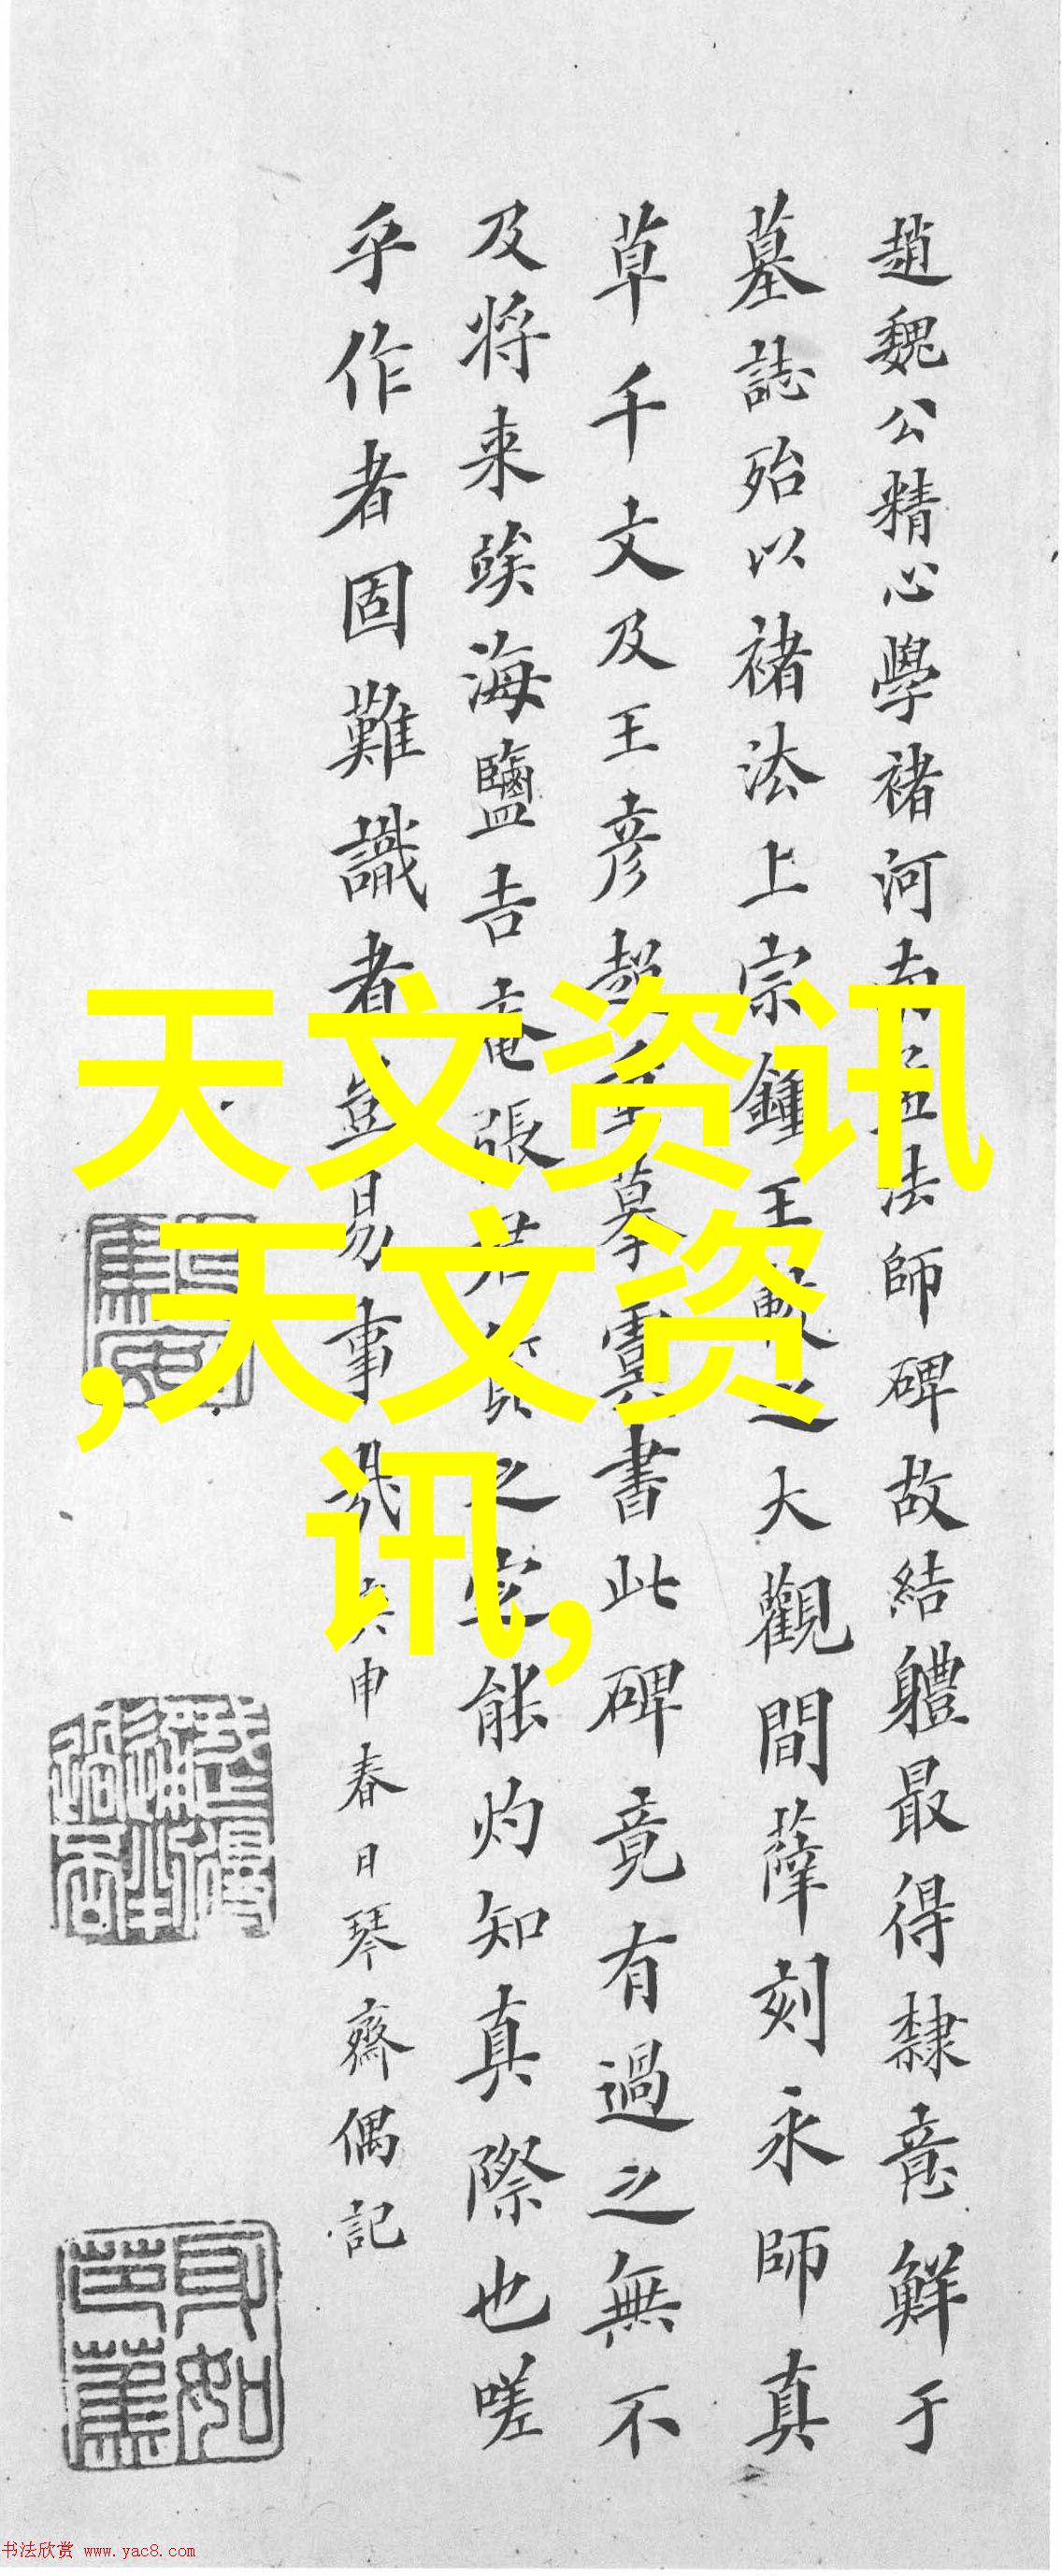 趙魏公精心學褚河南孟法師碑故結體最得隸意鮮于
墓誌殆以褚法上宗鍾王之大觀間薛刻永師真
草千文及王彦超摹虞書此碑竟有過之無不
及将来䇃海鹽吉庵張君之室能灼知真際也嗟
乎作者固難識者豈易事哉庚申春日琴齋偶記
天文资讯
,天文资
讯,
书法欣赏 www.yac8.com